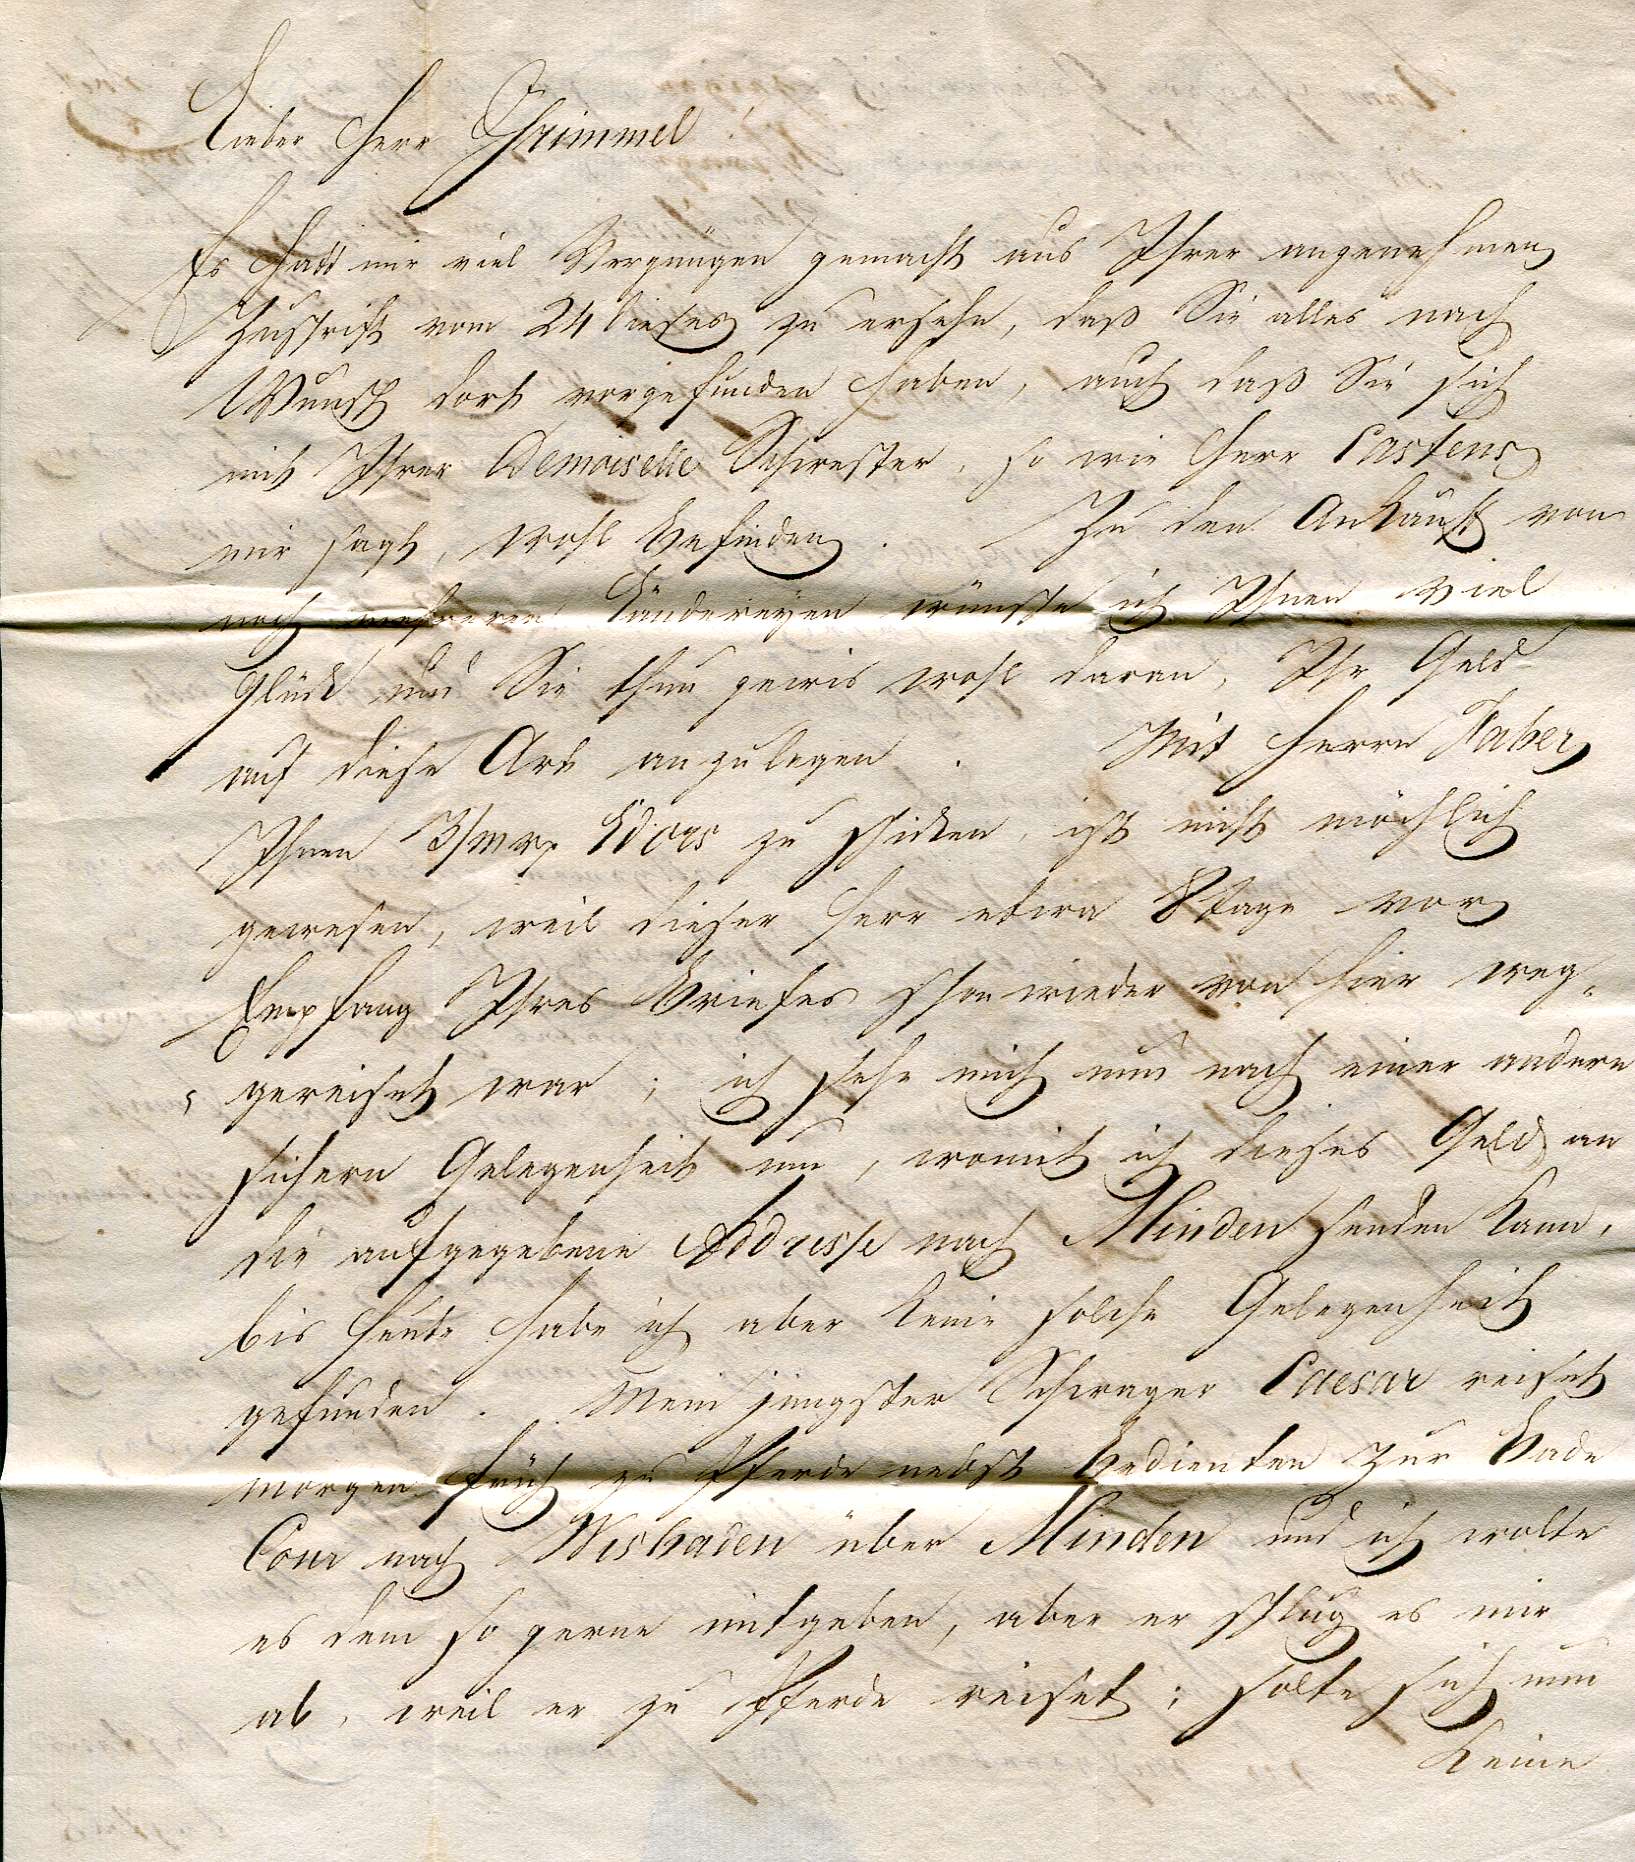 Lieber Herr Grimmel!
Es hatt mir viel Vergnügen gemacht aus Ihrer angenehmen
Zuschrift vom 24 dieses zu ersehn, daß Sie alles nach
Wunsch dort vorgefunden haben, auch daß Sie sich
mit Ihrer Demoiselle Schwester, so wie Herr Castens
mir sagt, wohl befinden. Zu den Ankauf von
noch mehreren Ländereyen wünsche ich Ihnen viel
Glück und Sie thun gewis wohl daran, Ihr Geld
auf diese Art anzulegen. Mit Herrn Faber
Ihnen Ldors zu schicken, ist nicht möchlich
gewesen, weil dieser Herr etwa 8 Tage vor
Empfang Ihres Briefes schon wieder von hier weg=
=gereiset war; ich sehe mich nun nach einer andern
sichern Gelegenheit um, womit ich dieses Geld an
die aufgegebene Addresse nach Minden senden kann,
bis heute habe ich aber keine solche Gelegenheit
gefunden. Mein jüngster Schwager Caesar reiset
morgen früh zu Pferde nebst Bedienten zur Bade
Cour nach Wisbaden über Minden und ich wolte
es dem so gerne mitgeben, aber er schlug es mir
ab, weil er zu Pferde reiset; solte sich nun
keine